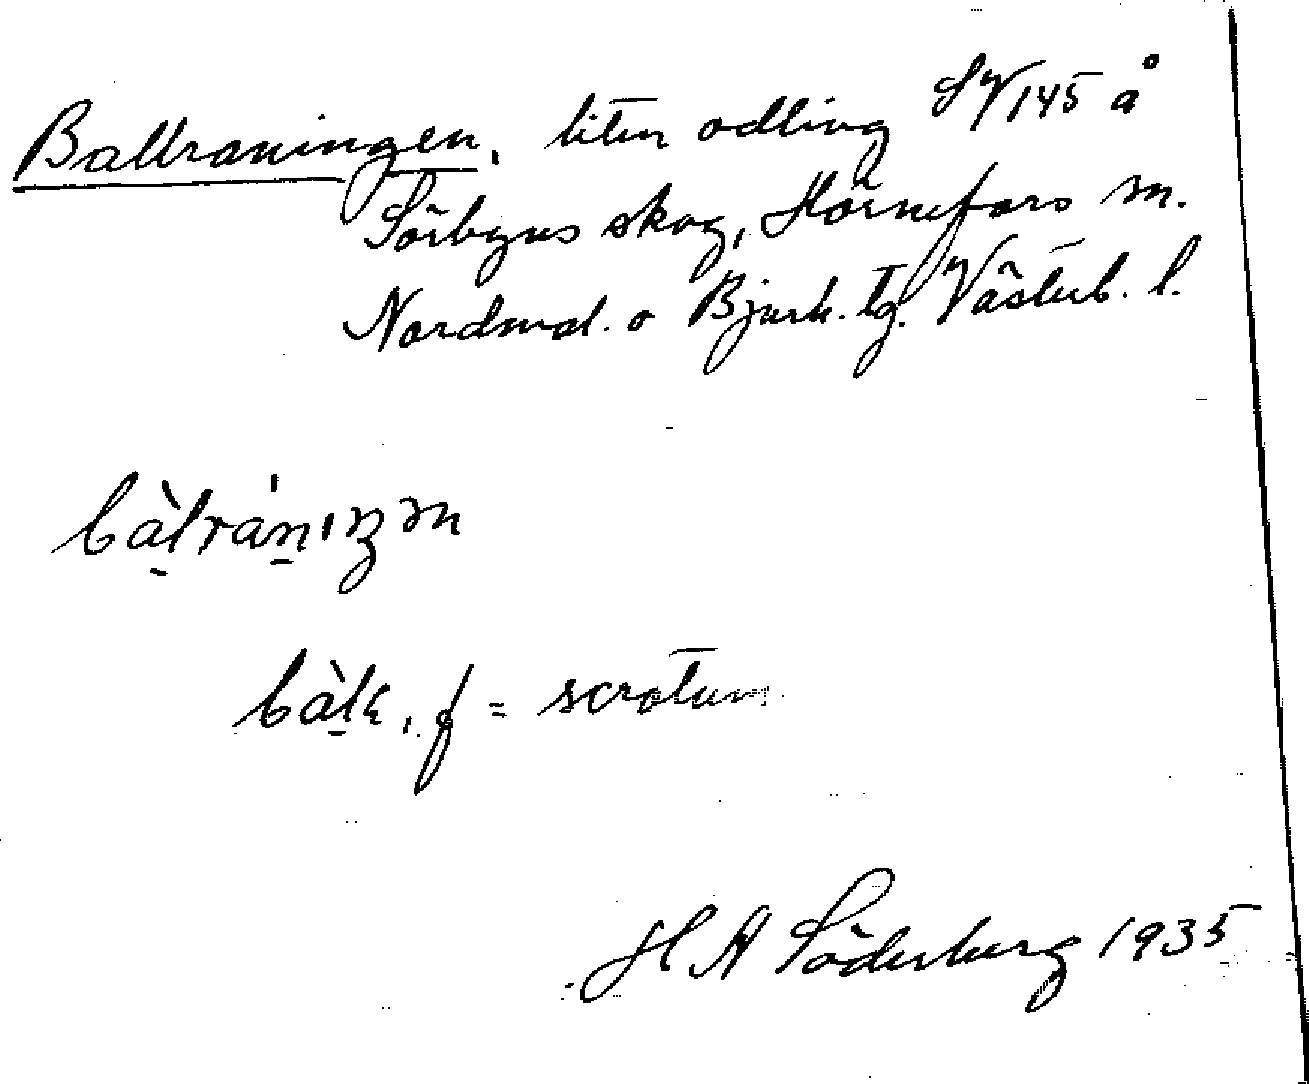 Ballraningen, liten odling SV 145 å
Sörbyns skog, Hörnefors sn.
Nordmal. o Bjurh. tg. Västerb. l.
bàlránıŋɜn
bàlɛ, f = scrotum
H A Söderberg 1935